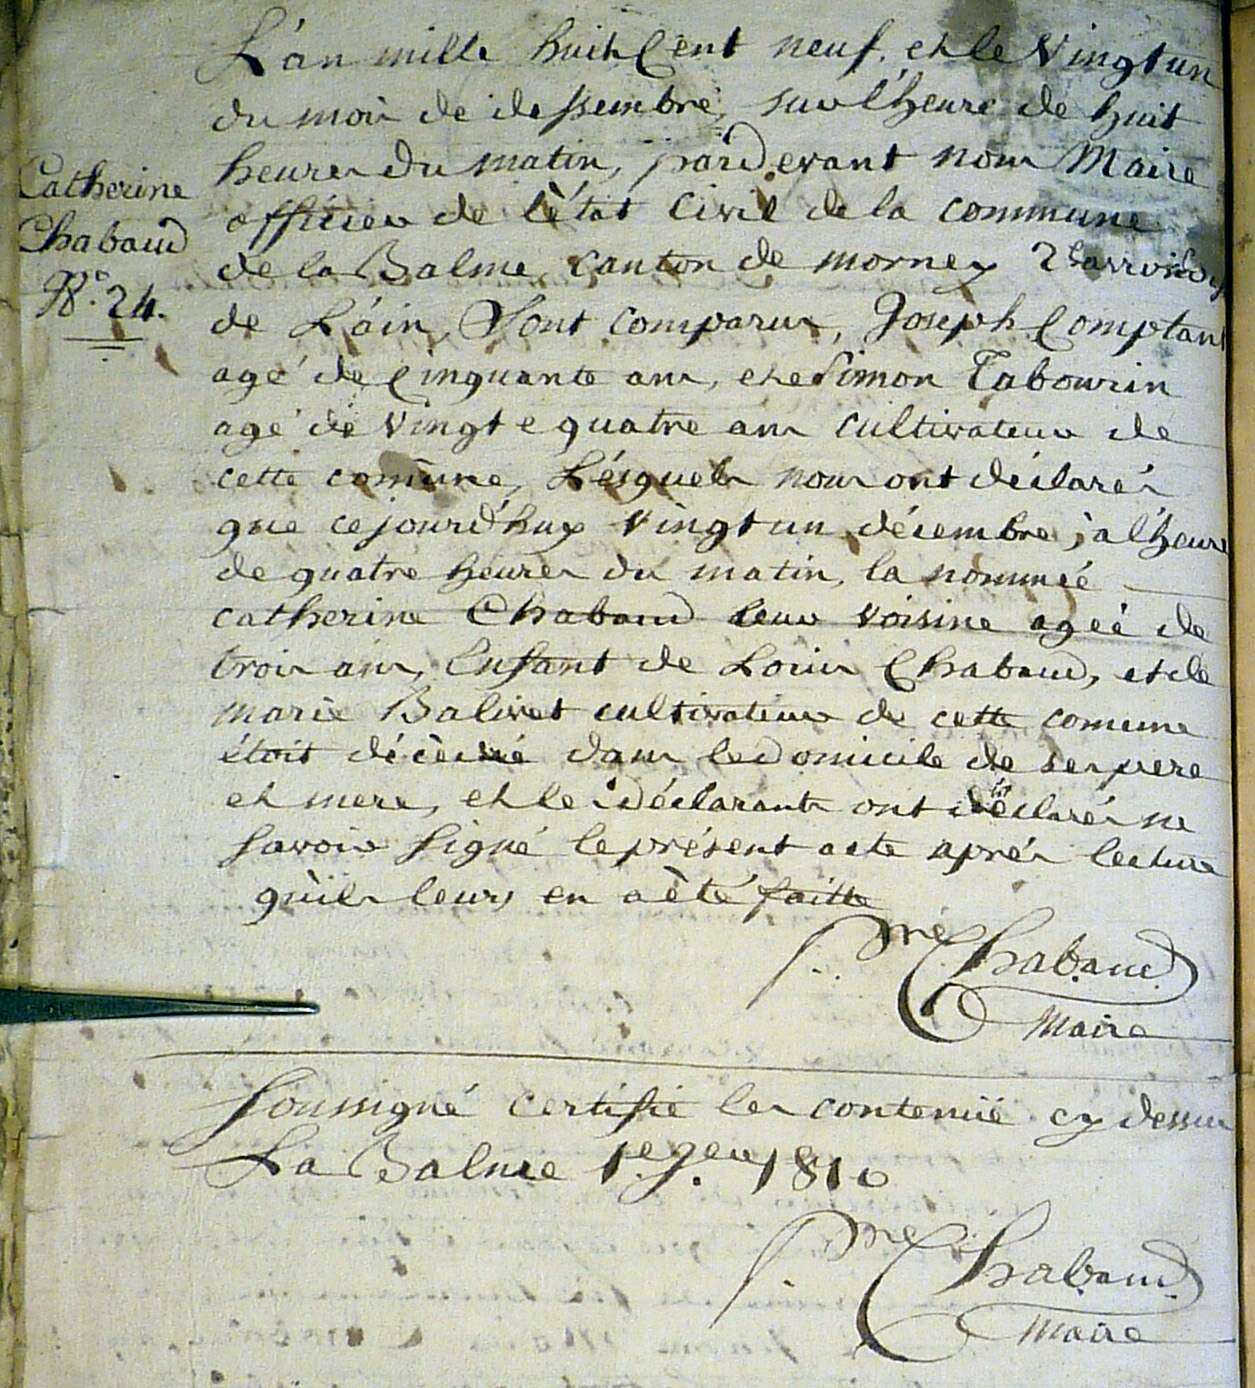 L'an mille huit Cent neuf. et le Vingt un
du mois de dessembre, sur l'heure de huit
heures du matin, pardevant nous Maire
officier de l'état Civil de la commune
de la Balme, canton de mornex
de L'ain, Sont comparus, Joseph Comptant
agé de Cinquante ans, et Simon Tabourin
agé de Vingt e quatre ans cultivateur de
cette comune, Lésquels nous ont déclarés
que cejourd'huy Vingt un décembre, à l'heure
de quatre heures du matin, la nommée
catherine Chabaud leur voisine ageé de
trois ans, Enfant de Louis Chabaud, et de
marie Balivet cultivateur de cette comune
étoit décèdé dans le domicile de ses pere
et mere, et les déclarants ont déclarés ne
savoir signé le présent acte aprés lecture
qu'ils leurs en a èté faitte
Catherine
Chabaud
N°. 24.
Chabaud
Maire
Soussigné certifie les contenüe cy dessus
La Balme 1e. jer 1810
Chabaud
Maire